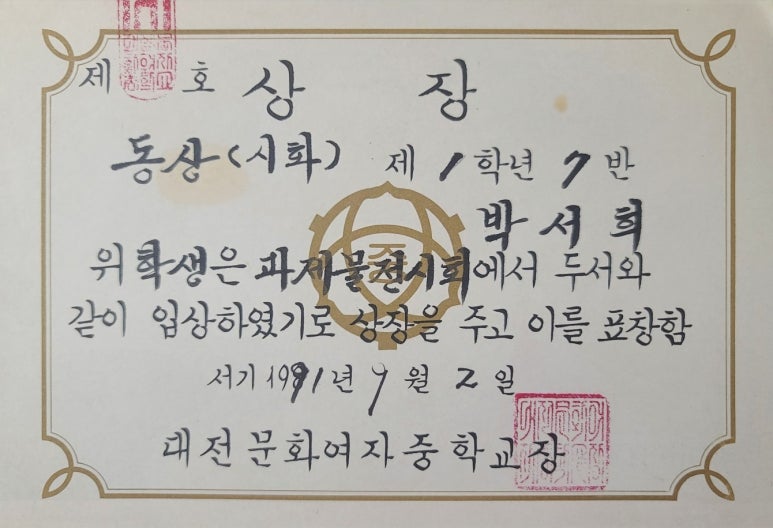 제 호 상 장
동상(시화) 제 1 학년 7 반
박서희
위 학생은 과제물전시회에서 두서와
같이 입상하였기로 상장을 주고 이를 표창함
서기 1991년 9월 2일
대전문화여자중학교장